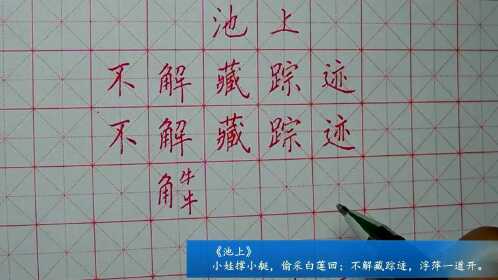 池上
不解藏踪迹
不解藏踪迹
角牛牛
《池上》
小娃撑小艇，偷采白莲回；不解藏踪迹，浮萍一道开。